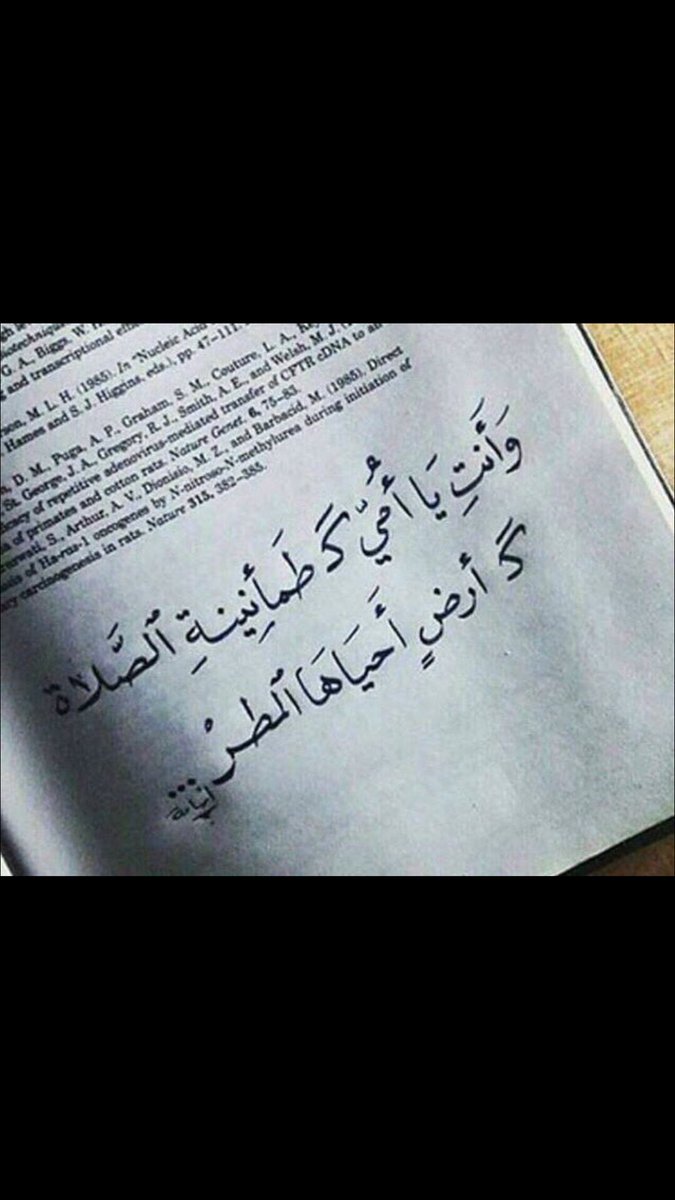 G. A., Biggs, W. H
g and transcriptional effi
M. L. H. (1985). In "Nucleic Acid
Hames and S. J. Higgins, eds.), pp. 47–111.
D. M., Puga, A. P., Graham, S. M., Couture, L. A.,
St. George, J. A., Gregory, R. J., Smith, A. E., and Welsh, M. J.
of repetitive adenovirus-mediated transfer of CFTR cDNA to
of primates and cotton rats. Nature Genet. 6, 75–83.
S., Arthur, A. V., Dionisio, M. Z., and Barbacid, M. (1985). Direct
of Ha-ras-1 oncogenes by N-nitroso-N-methylurea during initiation of
carcinogenesis in rats. Nature 315, 382–385.
وَأَنتِ يَا أُمِّي كَـ طَمَأنِينةِ ٱلصَّلَاة
كَـ أرضٍ أَحيَاهَا ٱلمطرْ...